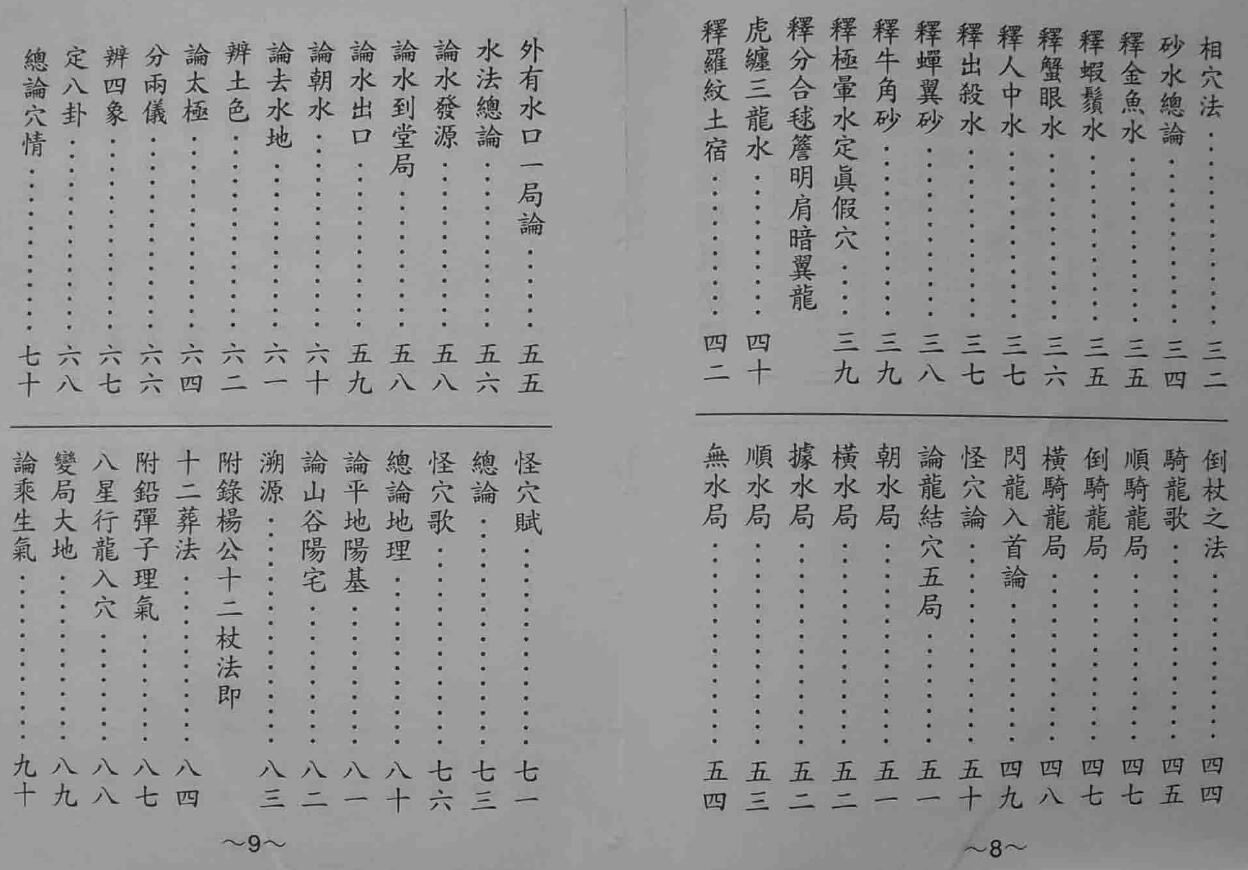 相穴法‥‥‥‥‥‥‥‥三二
砂水總論‥‥‥‥‥‥‥‥三四
釋金魚水‥‥‥‥‥‥‥‥三五
釋蝦鬚水‥‥‥‥‥‥‥‥三五
釋蟹眼水‥‥‥‥‥‥‥‥三六
釋人中水‥‥‥‥‥‥‥‥三七
釋出殺水‥‥‥‥‥‥‥‥三七
釋蟬翼砂‥‥‥‥‥‥‥‥三八
釋牛角砂‥‥‥‥‥‥‥‥三九
釋極暈水定眞假穴‥‥三九
釋分合毬簷明肩暗翼龍
虎纏三龍水‥‥‥‥‥‥‥四十
釋羅紋土宿‥‥‥‥‥‥‥四二
倒杖之法‥‥‥‥‥‥‥‥四四
騎龍歌‥‥‥‥‥‥‥‥四五
順騎龍局‥‥‥‥‥‥‥‥四七
倒騎龍局‥‥‥‥‥‥‥‥四七
橫騎龍局‥‥‥‥‥‥‥‥四八
閃龍入首論‥‥‥‥‥‥‥四九
怪穴論‥‥‥‥‥‥‥‥五十
論龍結穴五局‥‥‥‥‥五一
朝水局‥‥‥‥‥‥‥‥五一
橫水局‥‥‥‥‥‥‥‥五二
據水局‥‥‥‥‥‥‥‥五二
順水局‥‥‥‥‥‥‥‥五三
無水局‥‥‥‥‥‥‥‥五四
～8～
外有水口一局論‥‥‥五五
水法總論‥‥‥‥‥‥‥五六
論水發源‥‥‥‥‥‥‥五八
論水到堂局‥‥‥‥‥‥五八
論水出口‥‥‥‥‥‥‥五九
論朝水‥‥‥‥‥‥‥‥六十
論去水地‥‥‥‥‥‥‥六一
辨土色‥‥‥‥‥‥‥‥六二
論太極‥‥‥‥‥‥‥‥六四
分兩儀‥‥‥‥‥‥‥‥六六
辨四象‥‥‥‥‥‥‥‥六七
定八卦‥‥‥‥‥‥‥‥六八
總論穴情‥‥‥‥‥‥‥七十
怪穴賦‥‥‥‥‥‥‥‥七一
總論‥‥‥‥‥‥‥‥‥七三
怪穴歌‥‥‥‥‥‥‥‥七六
總論地理‥‥‥‥‥‥‥八十
論平地陽基‥‥‥‥‥‥八一
論山谷陽宅‥‥‥‥‥‥八二
溯源‥‥‥‥‥‥‥‥‥八三
附錄楊公十二杖法即
十二葬法‥‥‥‥‥‥‥八四
附鉛彈子理氣‥‥‥‥‥八七
八星行龍入穴‥‥‥‥‥八八
變局大地‥‥‥‥‥‥‥八九
論乘生氣‥‥‥‥‥‥‥九十
～9～